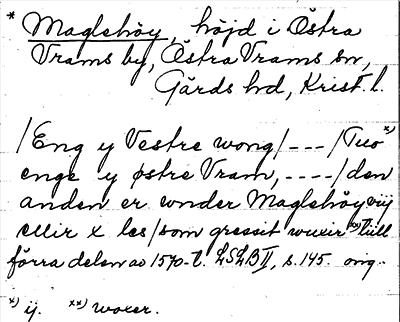 * Maglehöy, höjd i Östra
Vrams by, Östra Vrams sn,
Gärds hd, Krist. l.
/Eng y Vestre wong/---/Tuo x)
enge y østre Vram, ----/den
anden er wnder Maglehöy viij
ellir x les/som gressit wuxir xx) till
förra delen av 1570-t. LSLB II, s. 145. orig.
x) ij. xx) woxer.